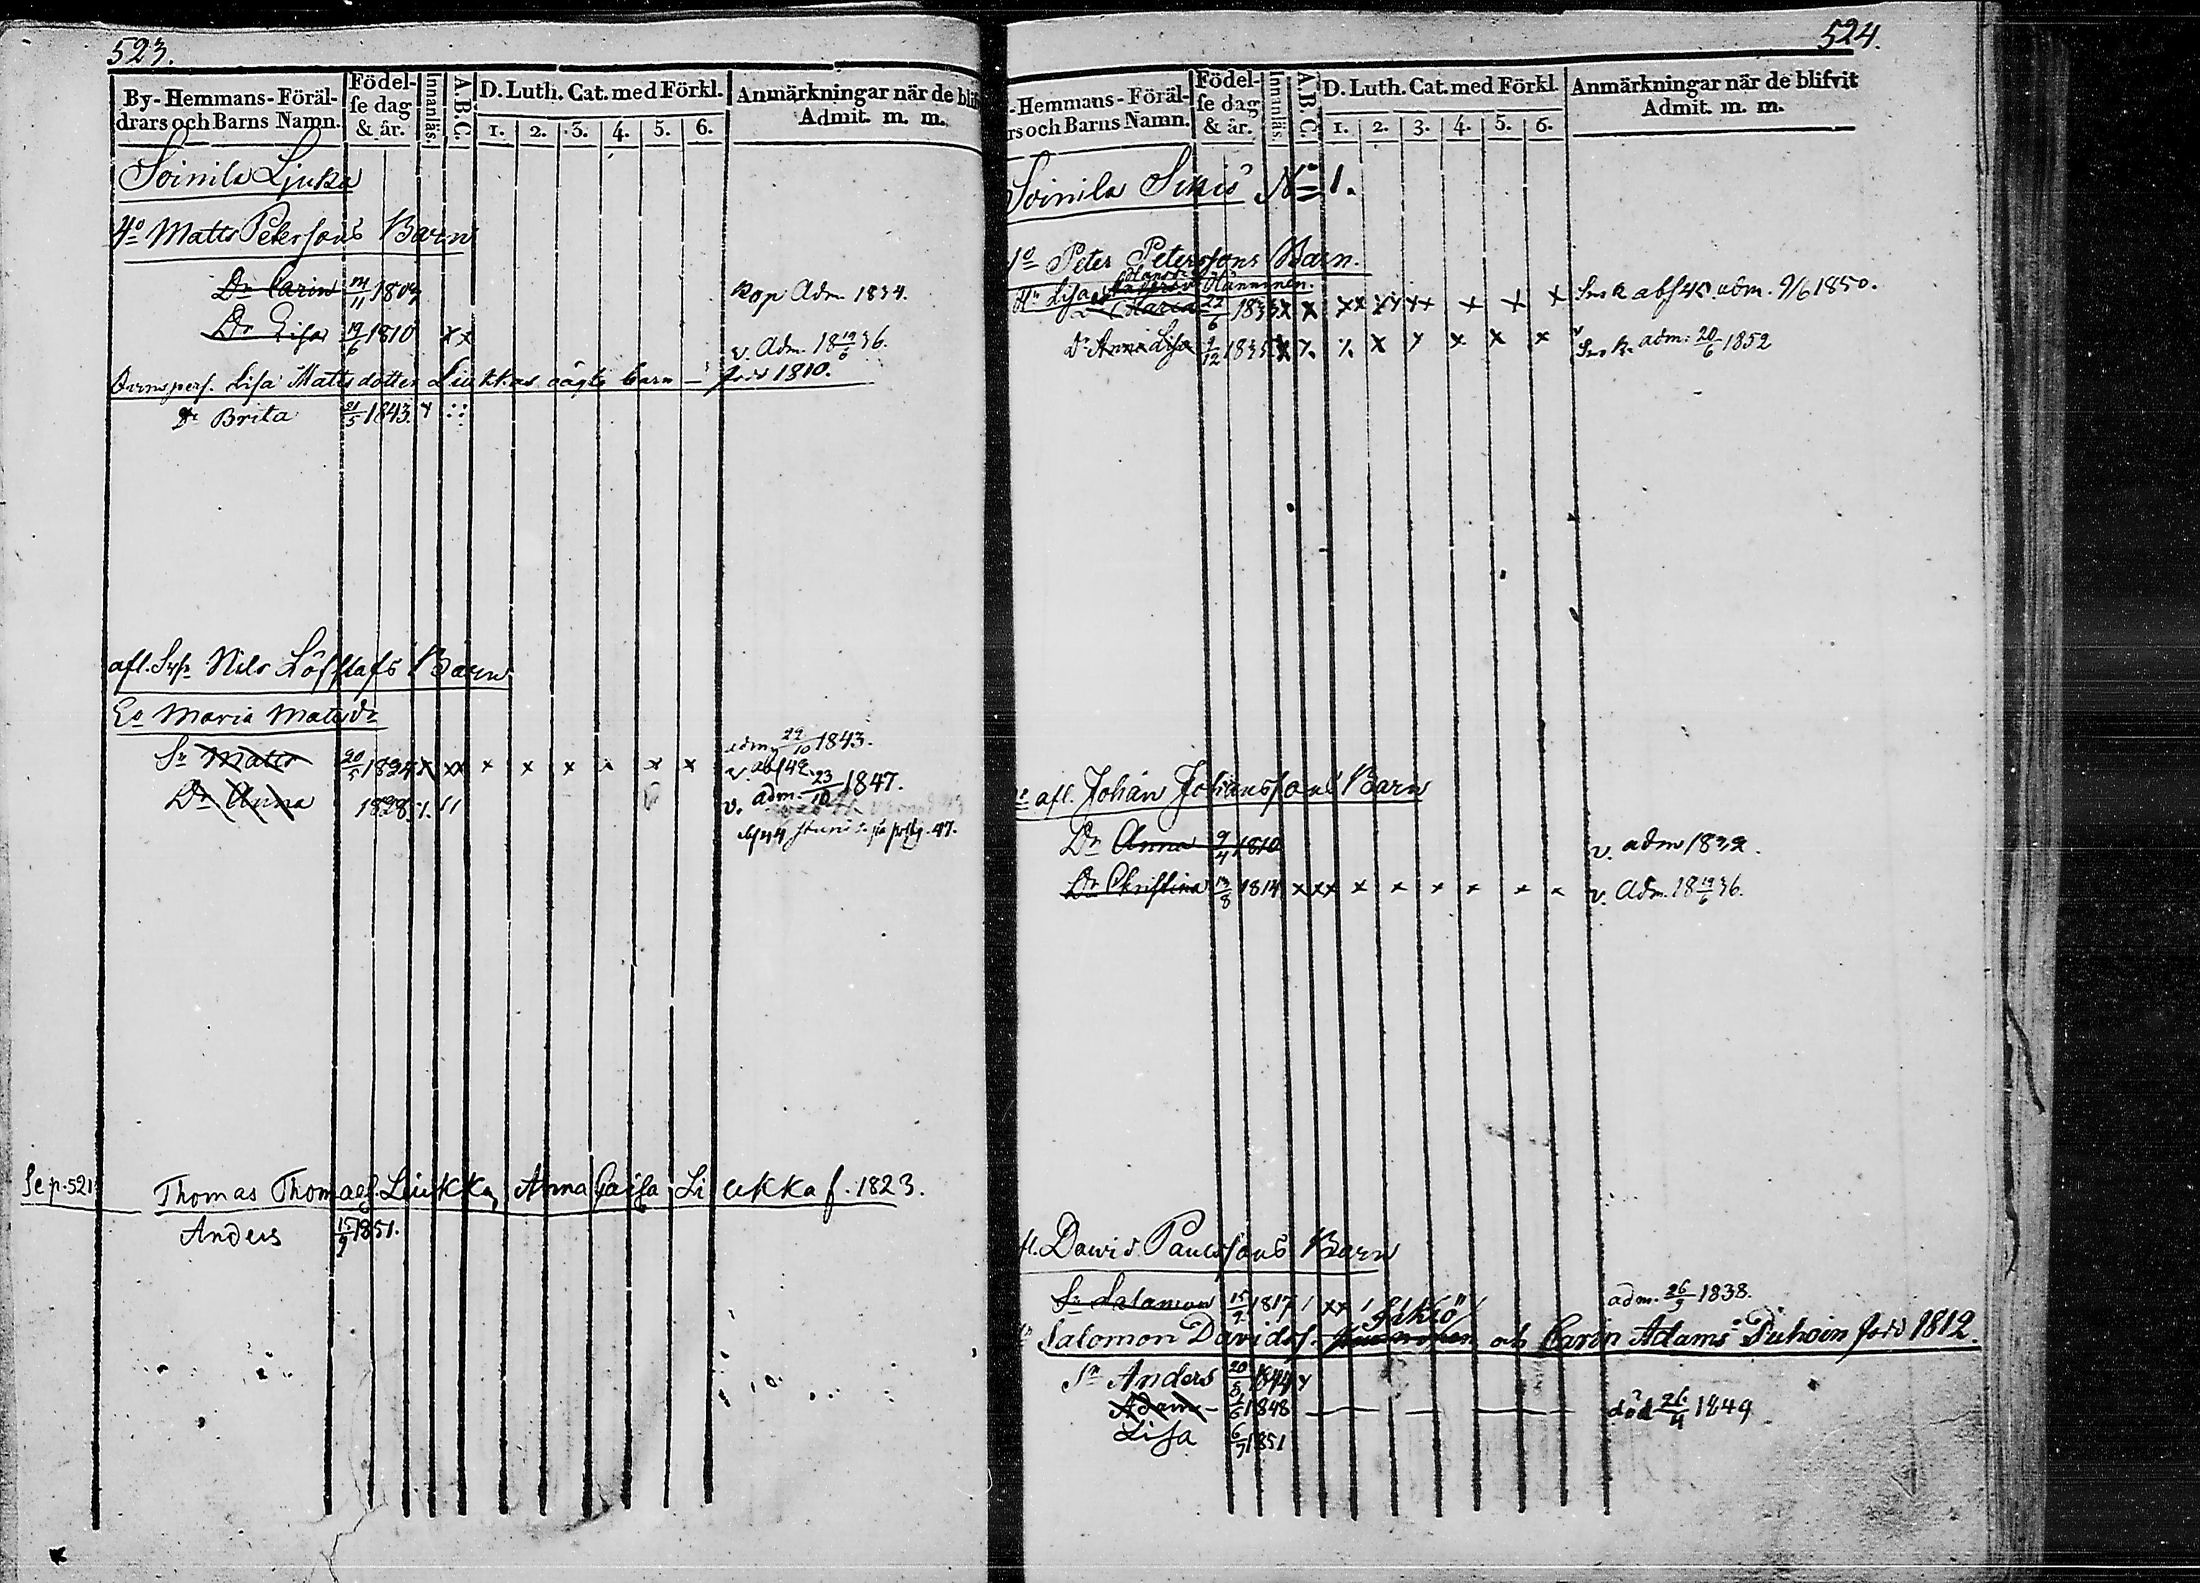 523.
By- Hemmans- Föräl-
drars och Barns Namn.
Födel-
se dag
& år.
Innanläs.
A.B.C.
D. Luth. Cat. med Förkl.
1. 2. 3. 4. 5. 6.
Anmärkningar när de blif
Admit. m. m.
Soinila Ljukka
4o Matts Peterssons Barn
Dr Carin 11 1809 kop Adm. 1834.
Dr Lisa 19/6 1810 x x v. Adm. 18 19/6 36.
Lisa Mattsdotter Liukkas oägta barn — född 1810.
Dr Brita 21/5 1843.
afl. Nils Löfflafs Barn
Eo Maria Matsdr
Sr Matts 20/5 1824 x xx x x x x x x adm. 29/10 1843.
v. abs 42.
Dr Anna 1828 v. adm. 23/10 1847.
Se p. 521 Thomas Thomaes. Liukka, Anna Caisa Liukka f. 1823.
Anders 15/9 1851.
524.
-Hemmans- Föräl-
rs och Barns Namn.
Födel-
se dag
& år.
Innanläs.
A.B.C.
D. Luth. Cat. med Förkl.
1. 2. 3. 4. 5. 6.
Anmärkningar när de blifvit
Admit. m. m.
Soinila No 1.
1o Peter Peterssons Barn.
Lisa Hänninen.
Maria 22/6 1833 x x xx x x x x abs 45. adm. 9/6 1850.
Dr Anna Lisa 9/12 1835 x x x x x x adm: 20/6 1852
afl. Johan Johanssons Barn
Dr Anna 9/4 1810 v. adm 1832.
Dr Christina 13/8 1814 x xx x x x x x x v. Adm. 18 19/6 36.
fl. Dawid Paulssons Barn
Sr Salomon 1817 xx adm. 26/9 1838.
Salomon Davidss. och Carin Adamsdr Puhoin född 1812.
Sr Anders 20/8 1844
Adam – 1/6 1848 död 26/4 1849
Lisa 6/9 1851